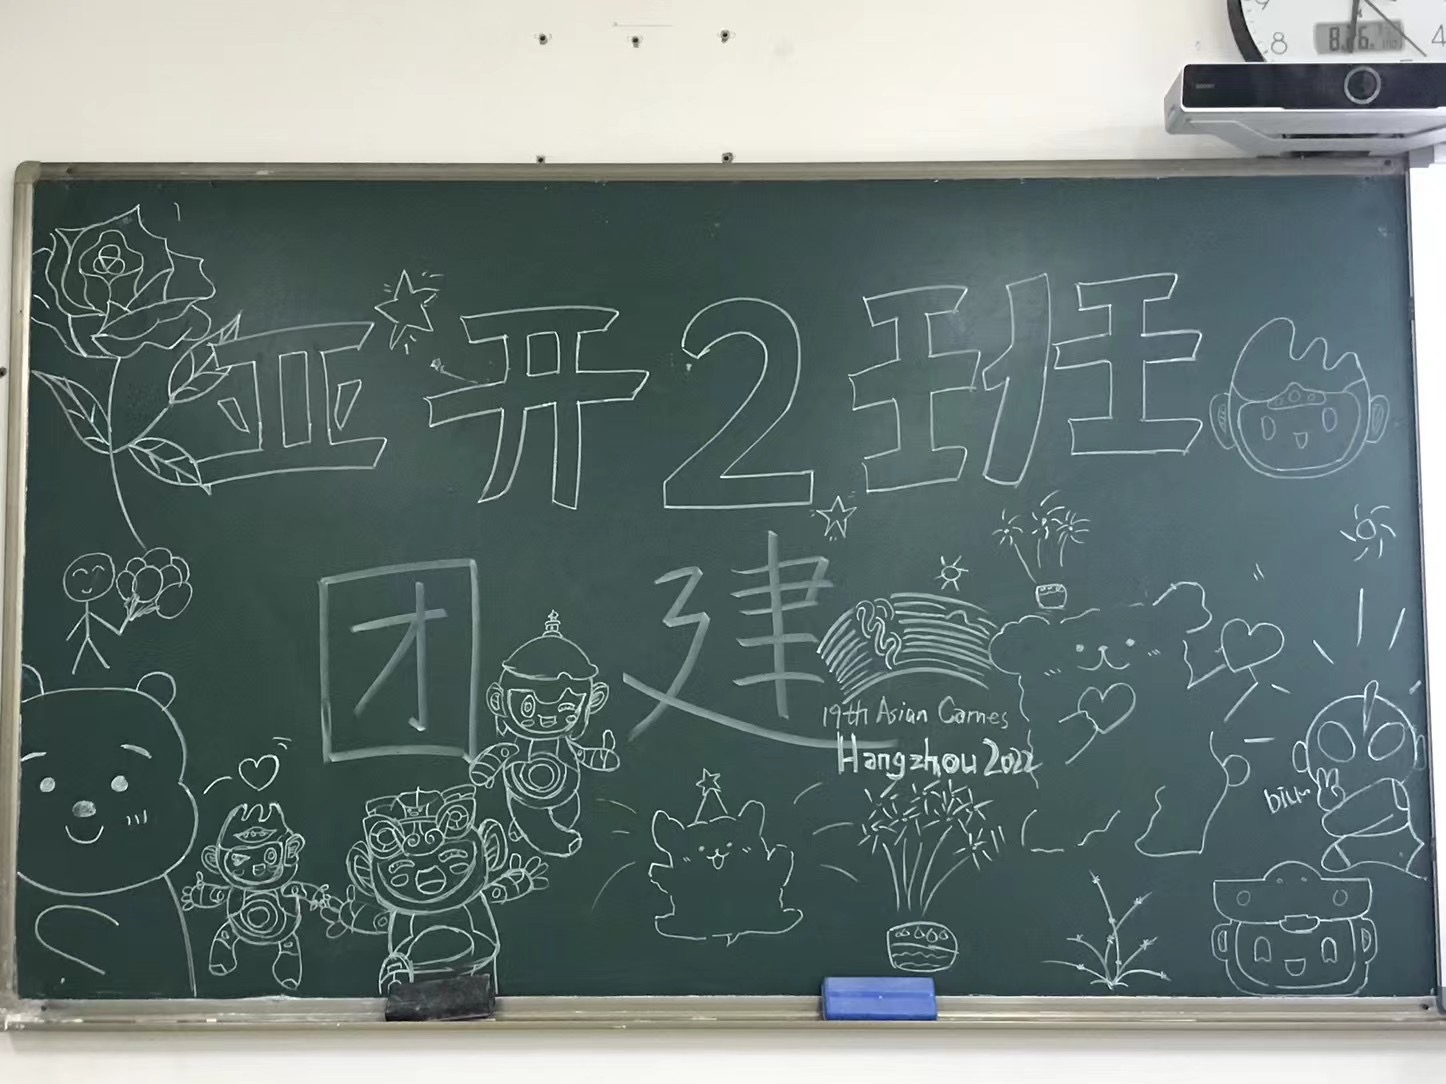 亚开2班
团建
19th Asian Games
Hangzhou 2022
biu~
8
4